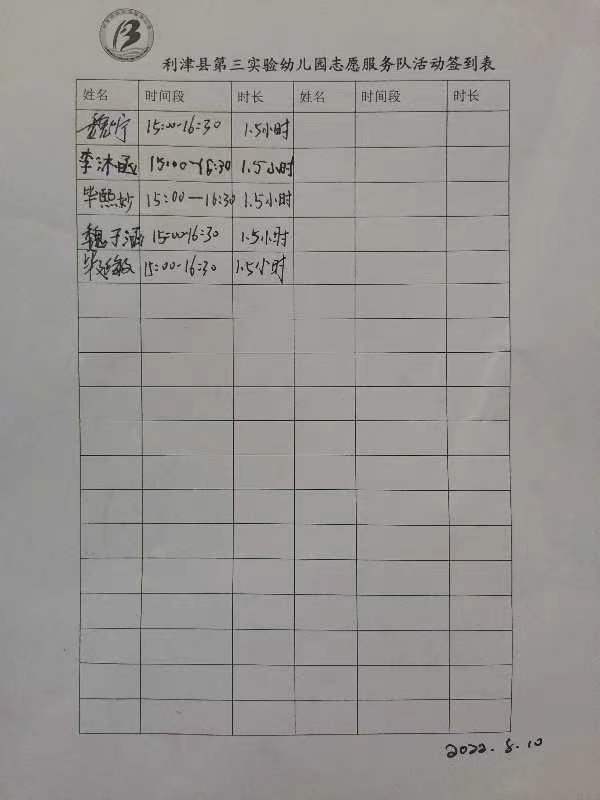 利津县第三实验幼儿园志愿服务队活动签到表
姓名 时间段 时长 姓名 时间段 时长
15:00-16:30 1.5小时
李沐函 15:00-16:30 1.5小时
毕熙妙 15:00-16:30 1.5小时
魏子涵 15:00-16:30 1.5小时
15:00-16:30 1.5小时
2022.8.10